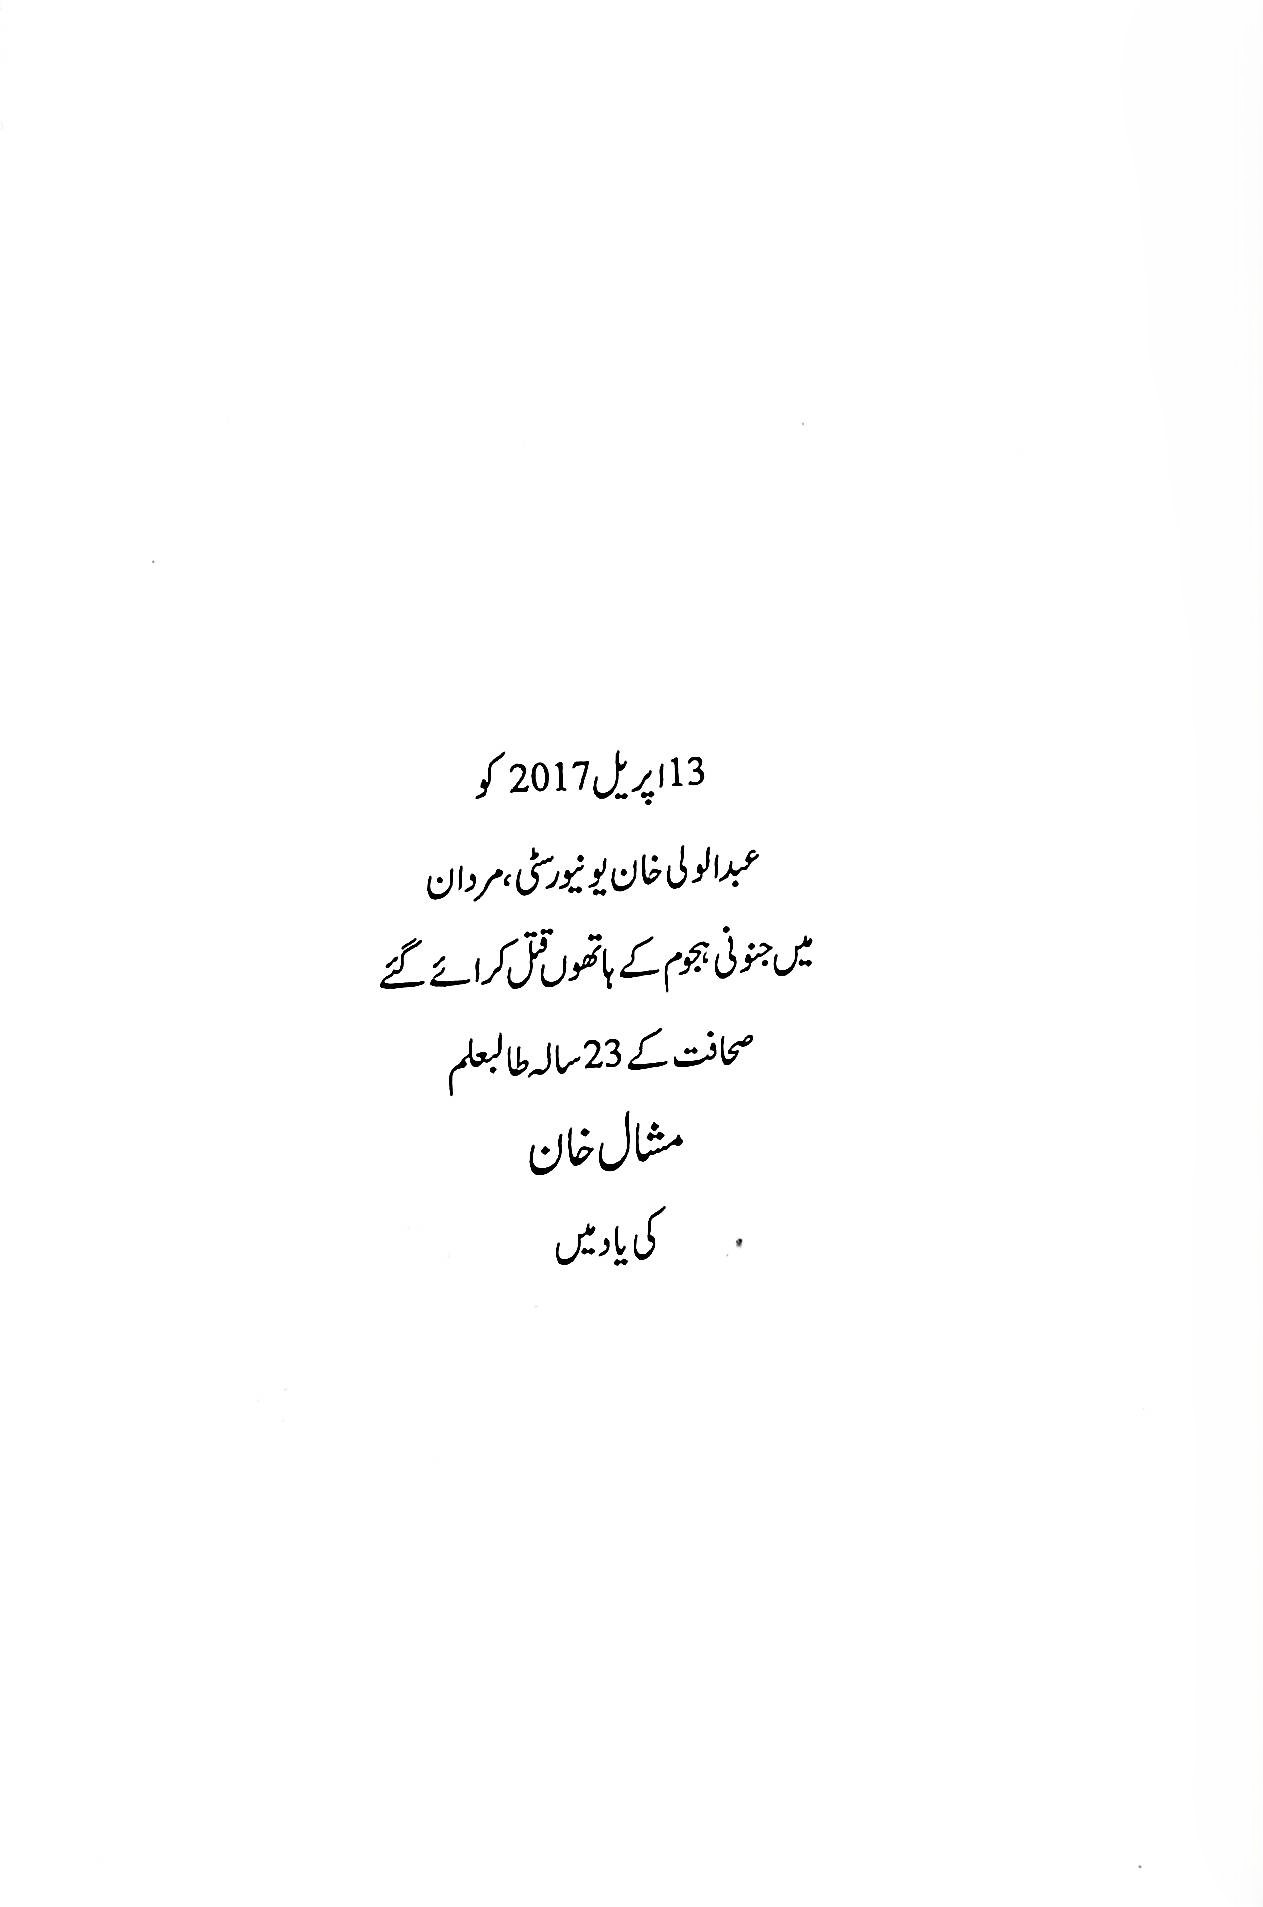 13اپریل2017 کو
عبدالولی خان یونیورسٹی، مردان
میں جنونی ہجوم کے ہاتھوں قتل کرائے گئے
صحافت کے 23سالہ طالبعلم
مشال خان
کی یاد میں